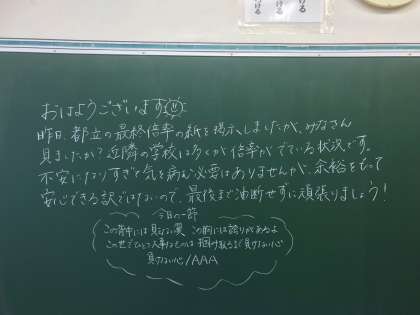 おはようございます!!
昨日、都立の最終倍率の紙を掲示しましたが、みなさん
見ましたか？近隣の学校は多くが倍率がでている状況です。
不安になりすぎて気を病む必要はありませんが、余裕をもって
安心できる訳ではないので、最後まで油断せずに頑張りましょう！
今日の一節
この背中には見えない翼 この胸には誇りがあるよ
この世でひとつ大事なものは 掴み取るまで負けない心
負けない心/AAA
ける